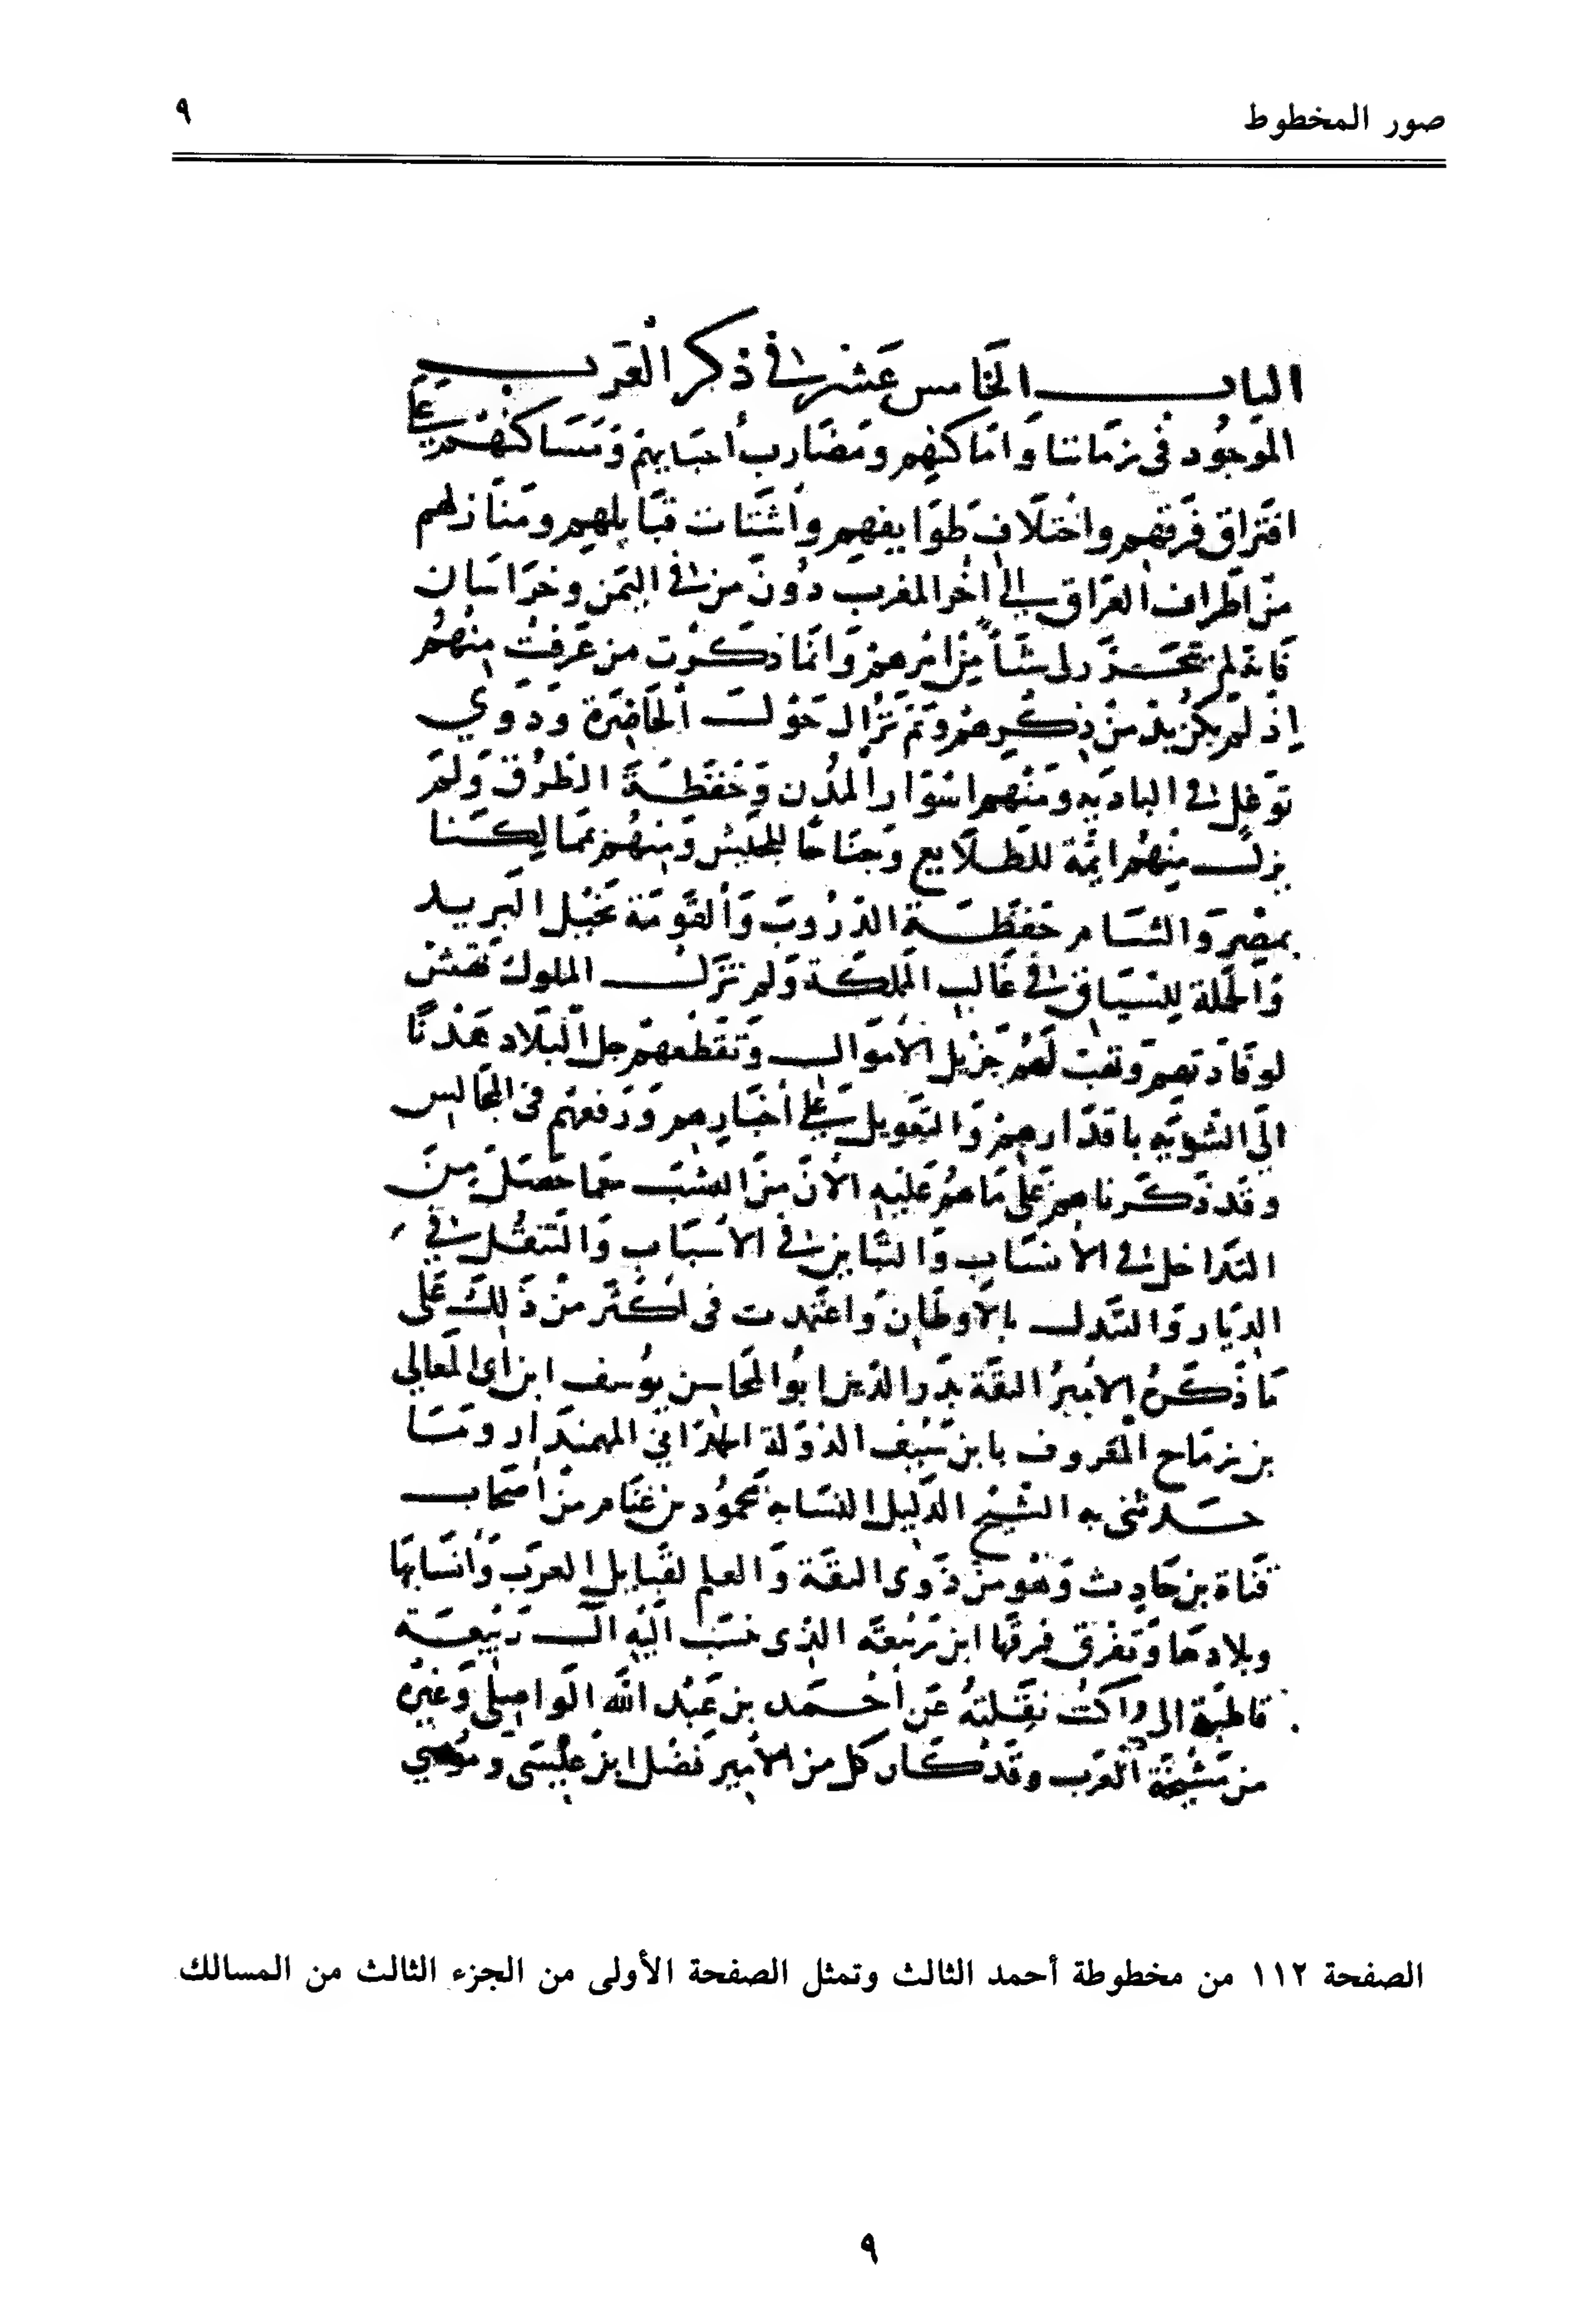 صور المخطوط ٩
الباب الخامس عشر في ذكر العرب
الموجود في زماننا وأماكنهم ومضارب أحيايهم ومساكنهم على
افتراق فرقهم واختلاف طوايفهم وأشتات قبايلهم ومنازلهم
من أطراف العراق إلى آخر المغرب دون من في اليمن وخراسان
فانه لم يتحرر لي شأ من أمرهم وانما ذكرت من عرفت منهم
إذ لم يكن بد من ذكرهم ولم تزال حولت الحاضرة ودوي
توغل في الباديه ومنهم اسوار المدن وحفظة الطرق ولم
يزل منهم ايمة للطلايع وجناحا للجيش ومنهم بممالكنا
بمصر والشام حفظة الدروب والقومة بخيل البريد
والحملة للسياق في غالب المملكة ولم تزل الملوك
وتهب لهم جزيل الأموال وتقطعهم جل البلاد هذا
الى التنويه باقدارهم والتعويل على أخبارهم ورفعهم في المجالس
وقد ذكرناهم على ما هم عليه الآن من النسب مما حصل من
التداخل في الأنساب والتباين في الأسباب والتنقل في
الديار والتبدل بالأوطان واعتمدت في أكثر من ذلك على
ما ذكره الأمير الثقة بدر الدين ابو المحاسن يوسف ابن ابى المعالي
بن زماح المعروف بابن سيف الدولة الحمداني المهمندار وما
حدثني به الشيخ الدليل النسابة محمود بن غنام من أصحاب
قناة بن حارث وهو من ذوي الثقة والعلم لقبايل العرب وأنسابها
وبلادها وتفرق فرقها ابن ربيعة الذى نسب اليه آل ربيعة
قاطبة الى ما كنت نقلته عن أحمد بن عبد الله الواصلي وغيره
من مشيخة العرب وقد كان كل من الأمير فضل ابن عيسى وموسي
الصفحة ١١٢ من مخطوطة أحمد الثالث وتمثل الصفحة الأولى من الجزء الثالث من المسالك
٩